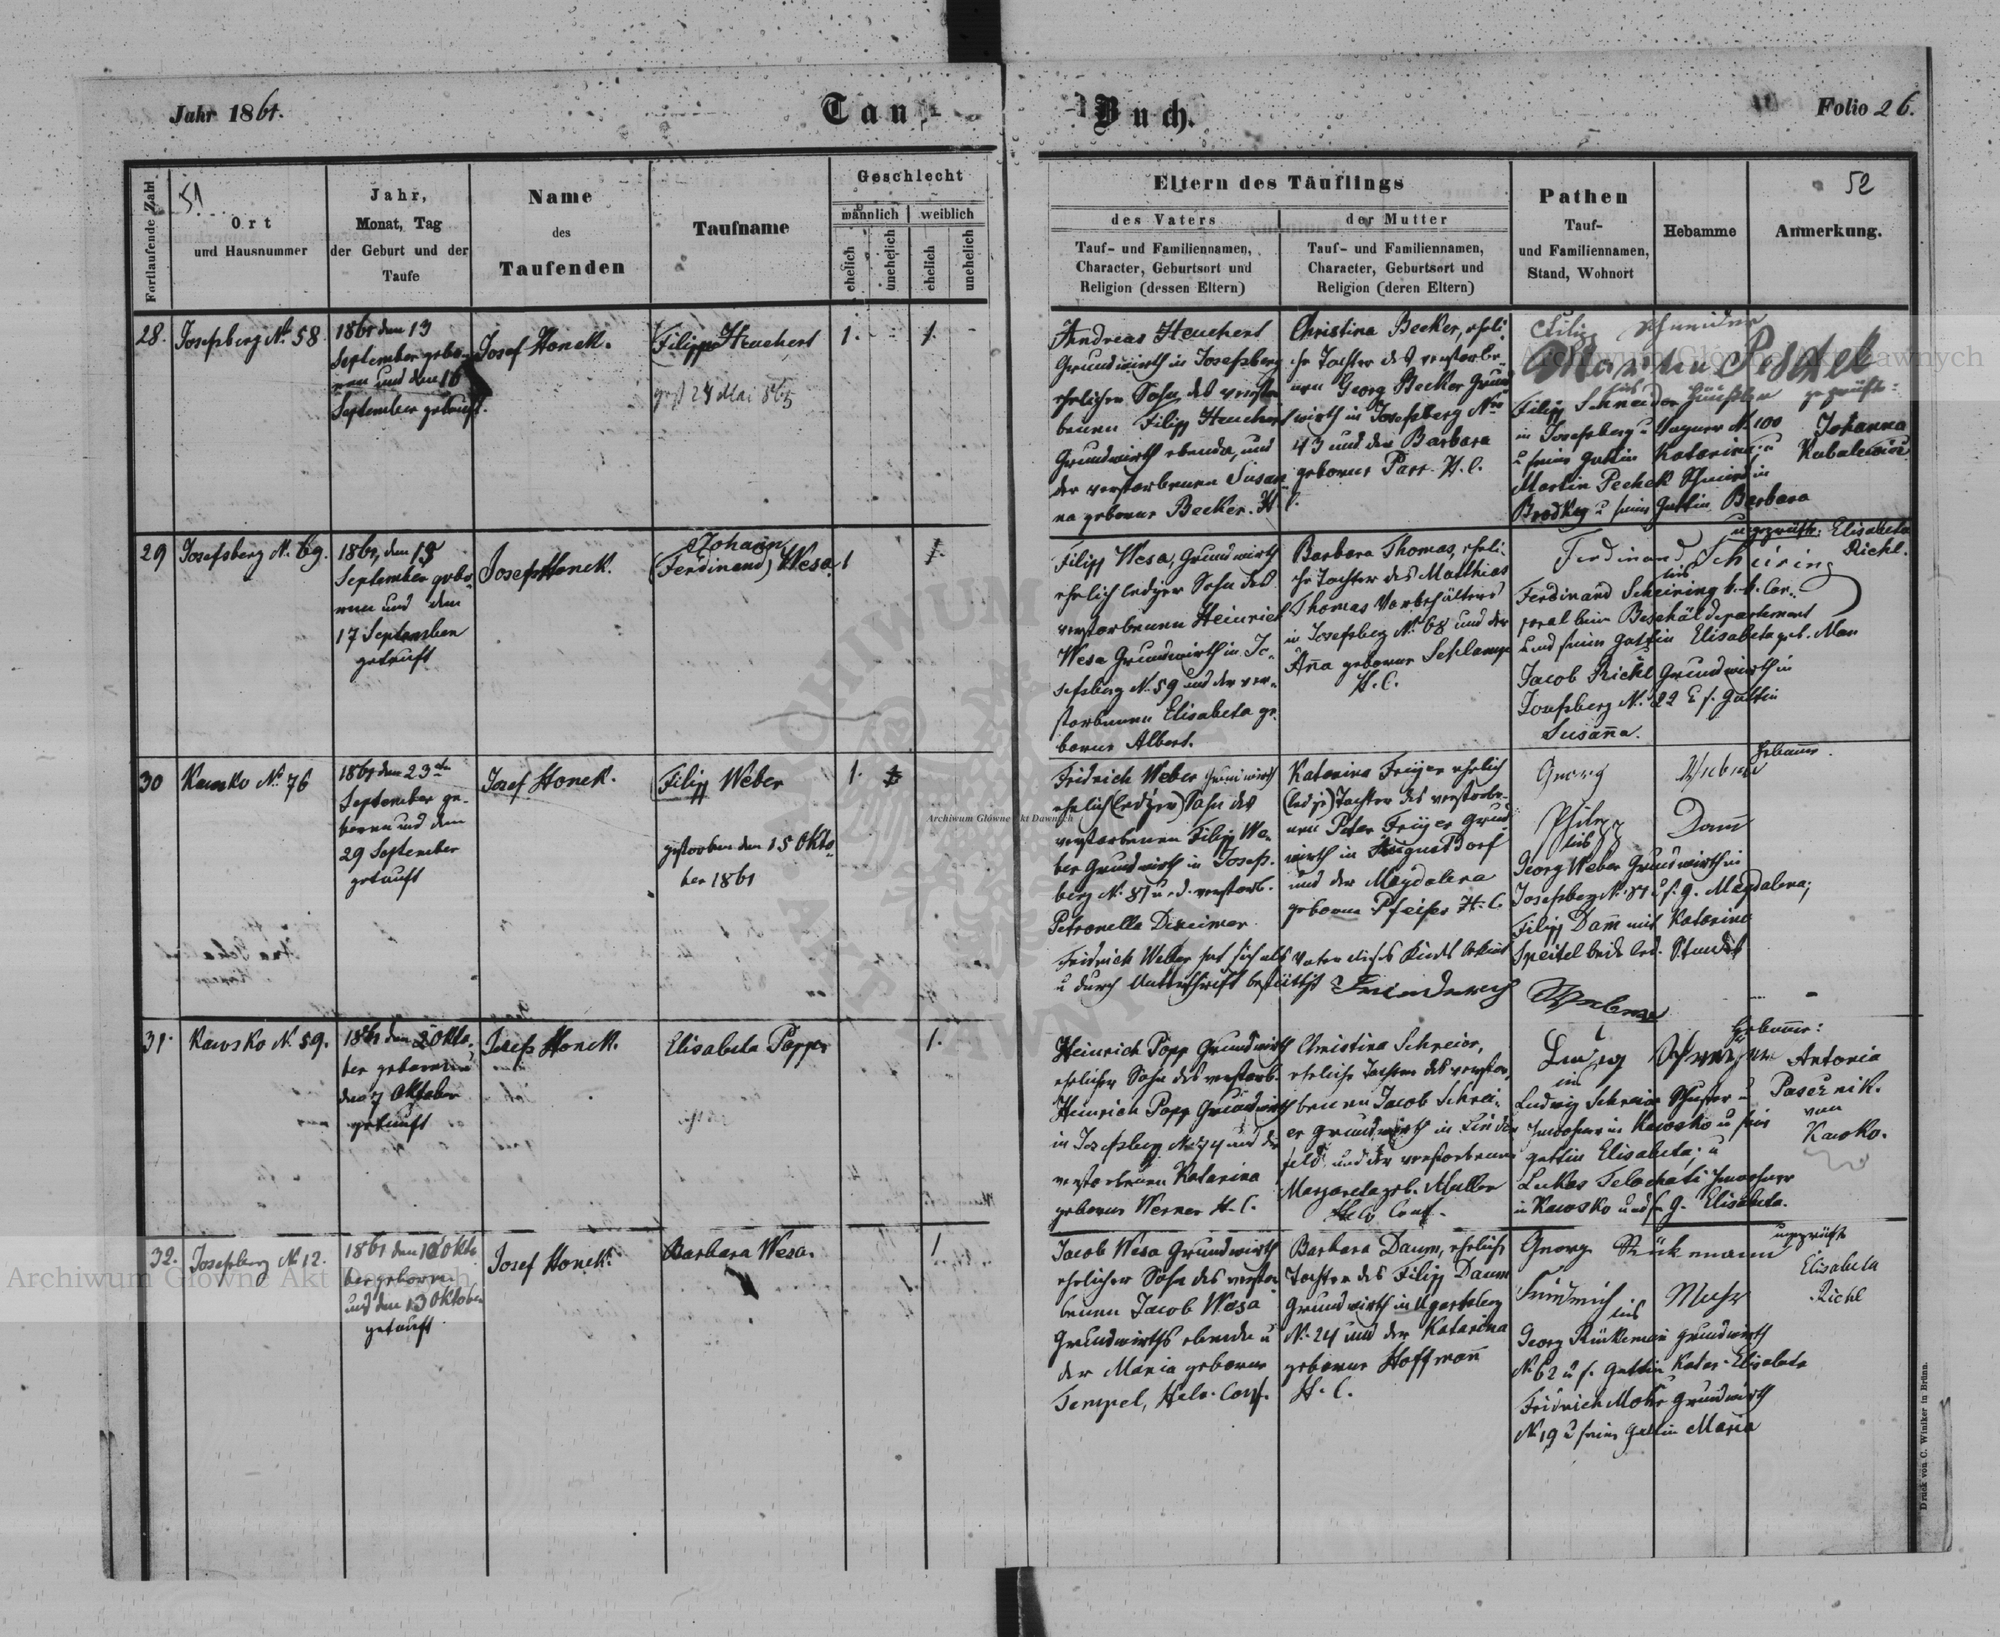 Jahr 1861.
Tauf-
Buch.
Folio 26.
51
52
Fortlaufende Zahl
Ort
und Hausnummer
Jahr,
Monat, Tag
der Geburt und der
Taufe
Name
des
Taufenden
Taufname
Geschlecht
männlich
weiblich
ehelich
unehelich
ehelich
unehelich
Eltern des Täuflings
des Vaters
Tauf- und Familiennamen,
Character, Geburtsort und
Religion (dessen Eltern)
der Mutter
Tauf- und Familiennamen,
Character, Geburtsort und
Religion (deren Eltern)
Pathen
Tauf-
und Familiennamen,
Stand, Wohnort
Hebamme
Anmerkung.
28.
Josefsberg No 58
1861 den 13
September gebo-
ren und den 16
September getauft.
Josef Honek.
Filipp Heuchert
gest 24 Mai 865
1.
1.
Andreas Heuchert
Grundwirth in Josefsberg
ehelicher Sohn des verstor
benen Filipp Heuchert
Grundwirth ebenda, und
der verstorbenen Susan
na geborne Becker. H. C.
Christina Becker, eheli-
che Tochter des verstorbe-
nen Georg Becker Grund
wirth in Josefsberg Nro
43 und der Barbara
geborne Parr. H. C.
Filip Schneider
Filipp Schneider Häusler
in Josefsberg u Wagner No 100
u seine Gattin Katarina; u
Martin Pechek Schmied in
Brodky u seine Gattin Barbara
geprüfte:
Johanna
29
Josefsberg No 69.
1861, den 15
September gebo-
ren und den
17 September
getauft
Josef Honek.
Johann
(Ferdinand) Wesa
1
1
Filipp Wesa, Grundwirth
ehelich lediger Sohn des
verstorbenen Heinrich
Wesa Grundwirth in Jo-
sefsberg No 59 und der ver-
storbenen Elisabeta ge-
borne Albert.
Barbara Thomas, eheli-
che Tochter des Matthias
Thomas Vorbehälters
in Josefsberg No 68 und der
Anna geborne Schlamp
H. C.
Ferdinand Scheiring
Ferdinand Scheiring k. k. Cor-
poral beim Beschäldepartement
und seine Gattin Elisabeta geb. Man
Jacob Rickl Grundwirth in
Josefsberg No 22 & s. Gattin
Susanna.
ungeprüfte: Elisabeta
Richl.
30
Kawsko No 76
1861 den 23ten
September ge-
boren und den
29 September
getauft
Josef Honek.
Filipp Weber
gestorben den 15 Okto-
ber 1861
1.
Fridrich Weber Grundwirth
ehelich (lediger) Sohn des
verstorbenen Filipp We-
ber Grundwirth in Josefs-
berg No 81 u. d. verstorb.
Petronella Dexeimer
Fridrich Weber hat sich als Vater dieses Kindes erklärt
u durch Unterschrift bestättigt Friederich Weber
Katarina Freyer ehelich
(ledige) Tochter des verstorbe-
nen Peter Freyer Grund
wirth in Augustdorf
und der Magdalena
geborne Pfeifer H. C.
Georg Weber
Philipp Damm
Georg Weber Grundwirth in
Josefsberg No 81 u s. g. Magdalena;
Filipp Damm mit Katarina
Speitel beide led. Standes
Hebamme.
31.
Kawsko No 59.
1861 den 2 Okto-
ber geboren u
den 7 Oktober
getauft
Josef Honek.
Elisabeta Popp
1.
Heinrich Popp Grundwirth
ehelicher Sohn des verstorb.
Heinrich Popp Grundwirth
in Josefsberg No 74 und der
verstorbenen Katarina
geborne Werner H. C.
Christina Schreier,
eheliche Tochter des verstor-
benen Jacob Schrei-
er Grundwirth in Linden
feld, und der verstorbenen
Margareta geb. Müller
Helv Conf.
Ludwig Schreier
Ludwig Schreier Schuster u
Inwohner in Kawsko u seine
Gattin Elisabeta; u
Lukas Inwohner
in Kawsko und s. g. Elisabeta.
Hebamme:
Antonia
Pasecznik.
von
Kawsko.
32.
Josefsberg No 12.
1861 den 10 Okto
ber geboren
und den 13 Oktober
getauft
Josef Honek.
Barbara Wesa.
1
Jacob Wesa Grundwirth
ehelicher Sohn des verstor
benen Jacob Wesa
Grundwirths ebenda u
der Maria geborne
Tempel, Helv. Conf.
Barbara Daum, eheliche
Tochter des Filipp Daum
Grundwirth in Ugartsberg
No 24 und der Katarina
geborne Hoffmann
H. C.
Georg Rükemann
Friedrich Mohr
Georg Rükemann Grundwirth
No 62 u s. Gattin Katar. Elisabeta
Fridrich Mohr Grundwirth
No 19 u seine Gattin Maria
ungeprüfte
Elisabeta
Richl
Druck von C. Winiker in Brünn.
Archiwum Główne Akt Dawnych
Archiwum Główne Akt Dawnych
Archiwum Główne Akt Dawnych